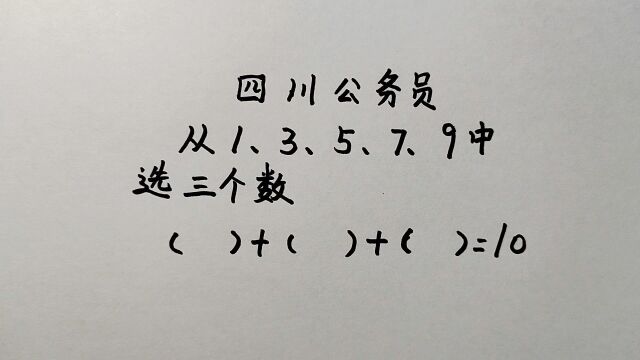 四川公务员
从1、3、5、7、9中
选三个数
( )+( )+( )=10